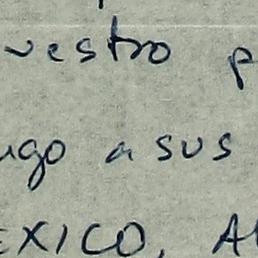 vestro p
ugo a sus
EXICO, A